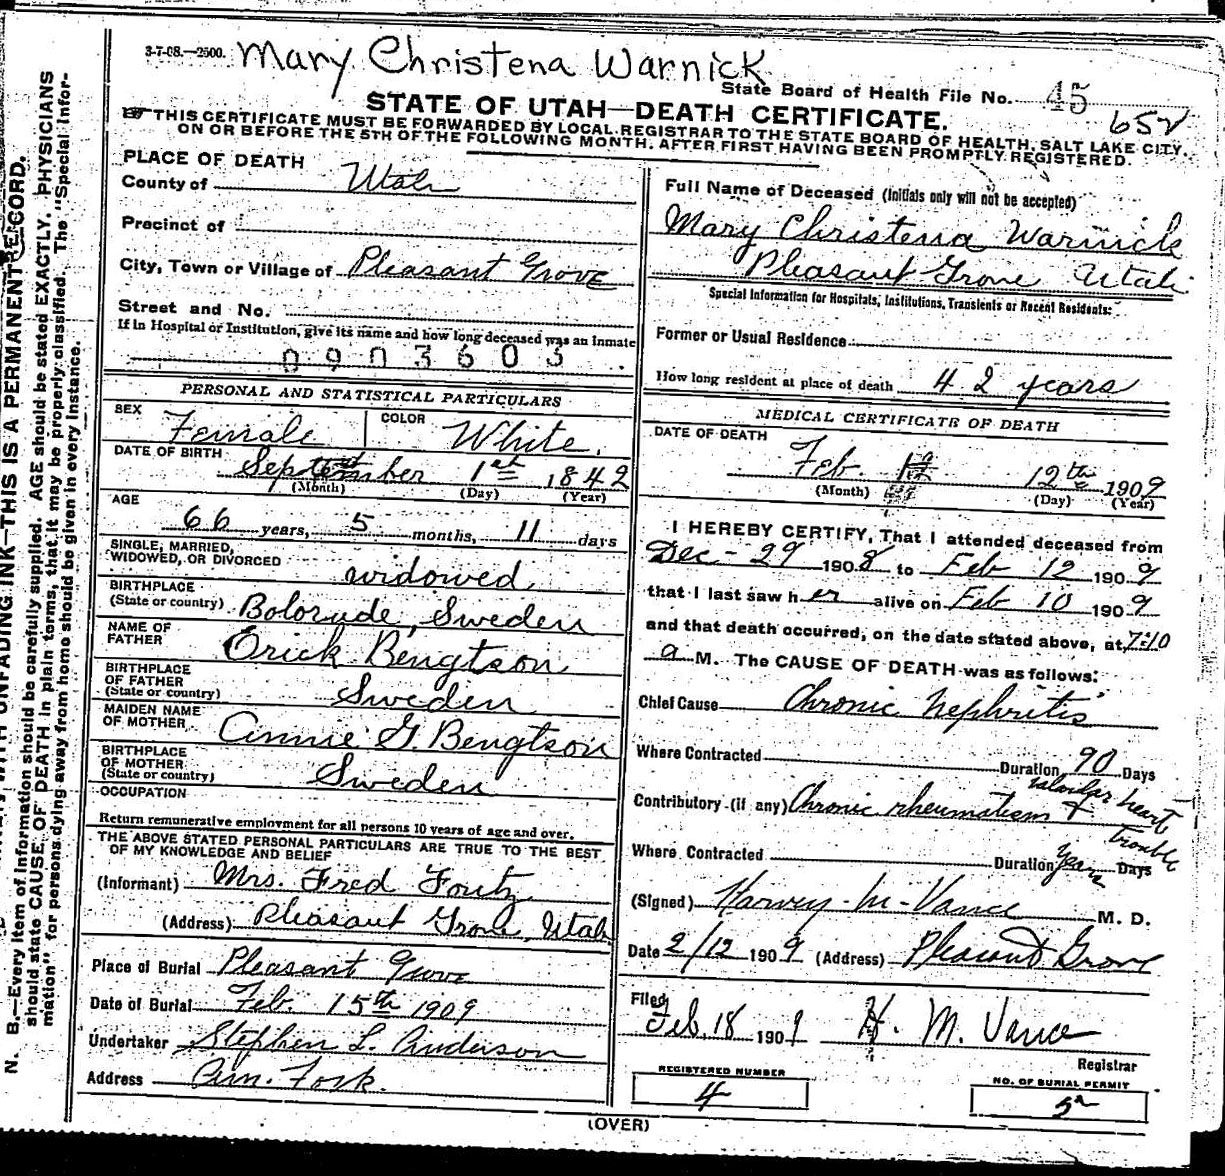 3-7-08.—2500. Mary Christena Warnick
State Board of Health File No. 45
652
STATE OF UTAH—DEATH CERTIFICATE.
THIS CERTIFICATE MUST BE FORWARDED BY LOCAL REGISTRAR TO THE STATE BOARD OF HEALTH, SALT LAKE CITY,
ON OR BEFORE THE 5TH OF THE FOLLOWING MONTH, AFTER FIRST HAVING BEEN PROMPTLY REGISTERED.
PLACE OF DEATH
County of Utah
Precinct of
City, Town or Village of Pleasant Grove
Street and No.
If in Hospital or Institution, give its name and how long deceased was an Inmate
0903605
PERSONAL AND STATISTICAL PARTICULARS
SEX Female COLOR White.
DATE OF BIRTH September 1st 1842
(Month) (Day) (Year)
AGE
66 years, 5 months, 11 days
SINGLE, MARRIED,
WIDOWED, OR DIVORCED widowed
BIRTHPLACE
(State or country) Sweden
NAME OF
FATHER Erick Bengtson
BIRTHPLACE
OF FATHER
(State or country) Sweden
MAIDEN NAME
OF MOTHER Annie G. Bengtson
BIRTHPLACE
OF MOTHER
(State or country) Sweden
OCCUPATION
Return remunerative employment for all persons 10 years of age and over.
THE ABOVE STATED PERSONAL PARTICULARS ARE TRUE TO THE BEST
OF MY KNOWLEDGE AND BELIEF
(Informant) Mrs. Fred Foutz
(Address) Pleasant Grove, Utah
Place of Burial Pleasant Grove
Date of Burial Feb. 15th 1909
Undertaker Stephen L. Anderson
Address Am. Fork.
Full Name of Deceased (Initials only will not be accepted)
Mary Christena Warnick
Pleasant Grove Utah
Special Information for Hospitals, Institutions, Transients or Recent Residents:
Former or Usual Residence
How long resident at place of death 42 years
MEDICAL CERTIFICATE OF DEATH
DATE OF DEATH
Feb 12th 1909
(Month) (Day) (Year)
I HEREBY CERTIFY, That I attended deceased from
Dec - 29 1908 to Feb 12 1909
that I last saw her alive on Feb 10 1909
and that death occurred, on the date stated above, at 7:10
a M. The CAUSE OF DEATH was as follows:
Chief Cause Chronic Nephritis
Where Contracted Duration 90 Days
Contributory (if any) Chronic rheumatism + valvular heart
trouble
Where Contracted Duration years Days
(Signed) Harvey M. Vance M. D.
Date 2/12 1909 (Address) Pleasant Grove
Filed
Feb. 18 1909 H. M. Vance
Registrar
REGISTERED NUMBER
4
NO. OF BURIAL PERMIT
(OVER)
N. B.—Every item of information should be carefully supplied. AGE should be stated EXACTLY. PHYSICIANS
should state CAUSE OF DEATH in plain terms, that it may be properly classified. The "Special Infor-
mation" for persons dying away from home should be given in every instance.
WITH UNFADING INK—THIS IS A PERMANENT RECORD.